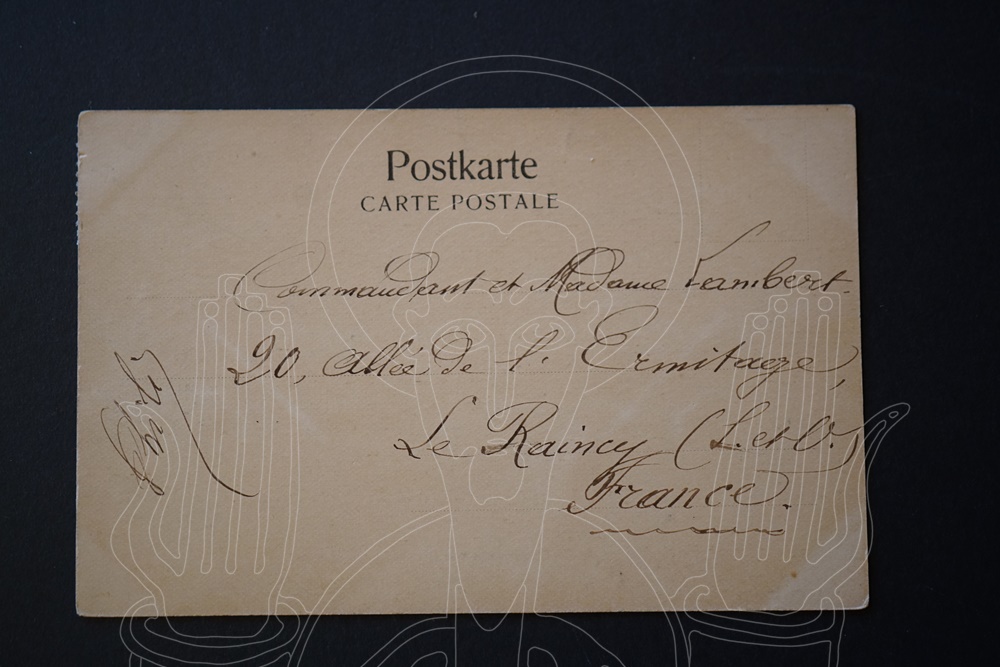 Postkarte
CARTE POSTALE
Commandant et Madame Lambert.
20, allée de l'Ermitage,
Le Raincy (S.et.O.)
France.